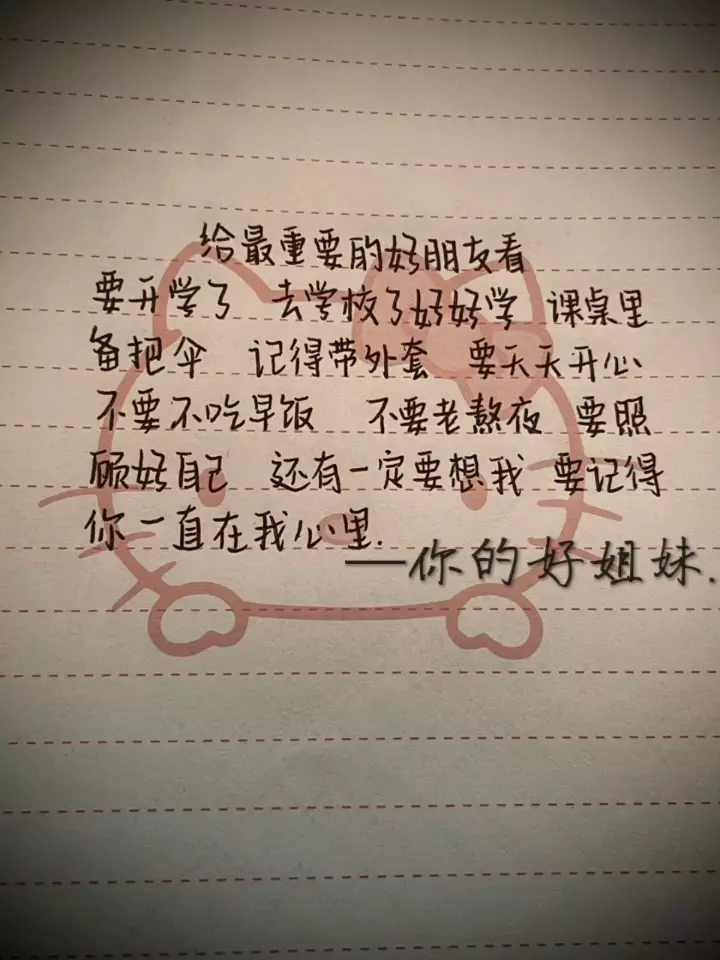 给最重要的好朋友看
要开学了 去学校了好好学 课桌里
备把伞 记得带外套 要天天开心
不要不吃早饭 不要老熬夜 要照
顾好自己 还有一定要想我 要记得
你一直在我心里.
——你的好姐妹.